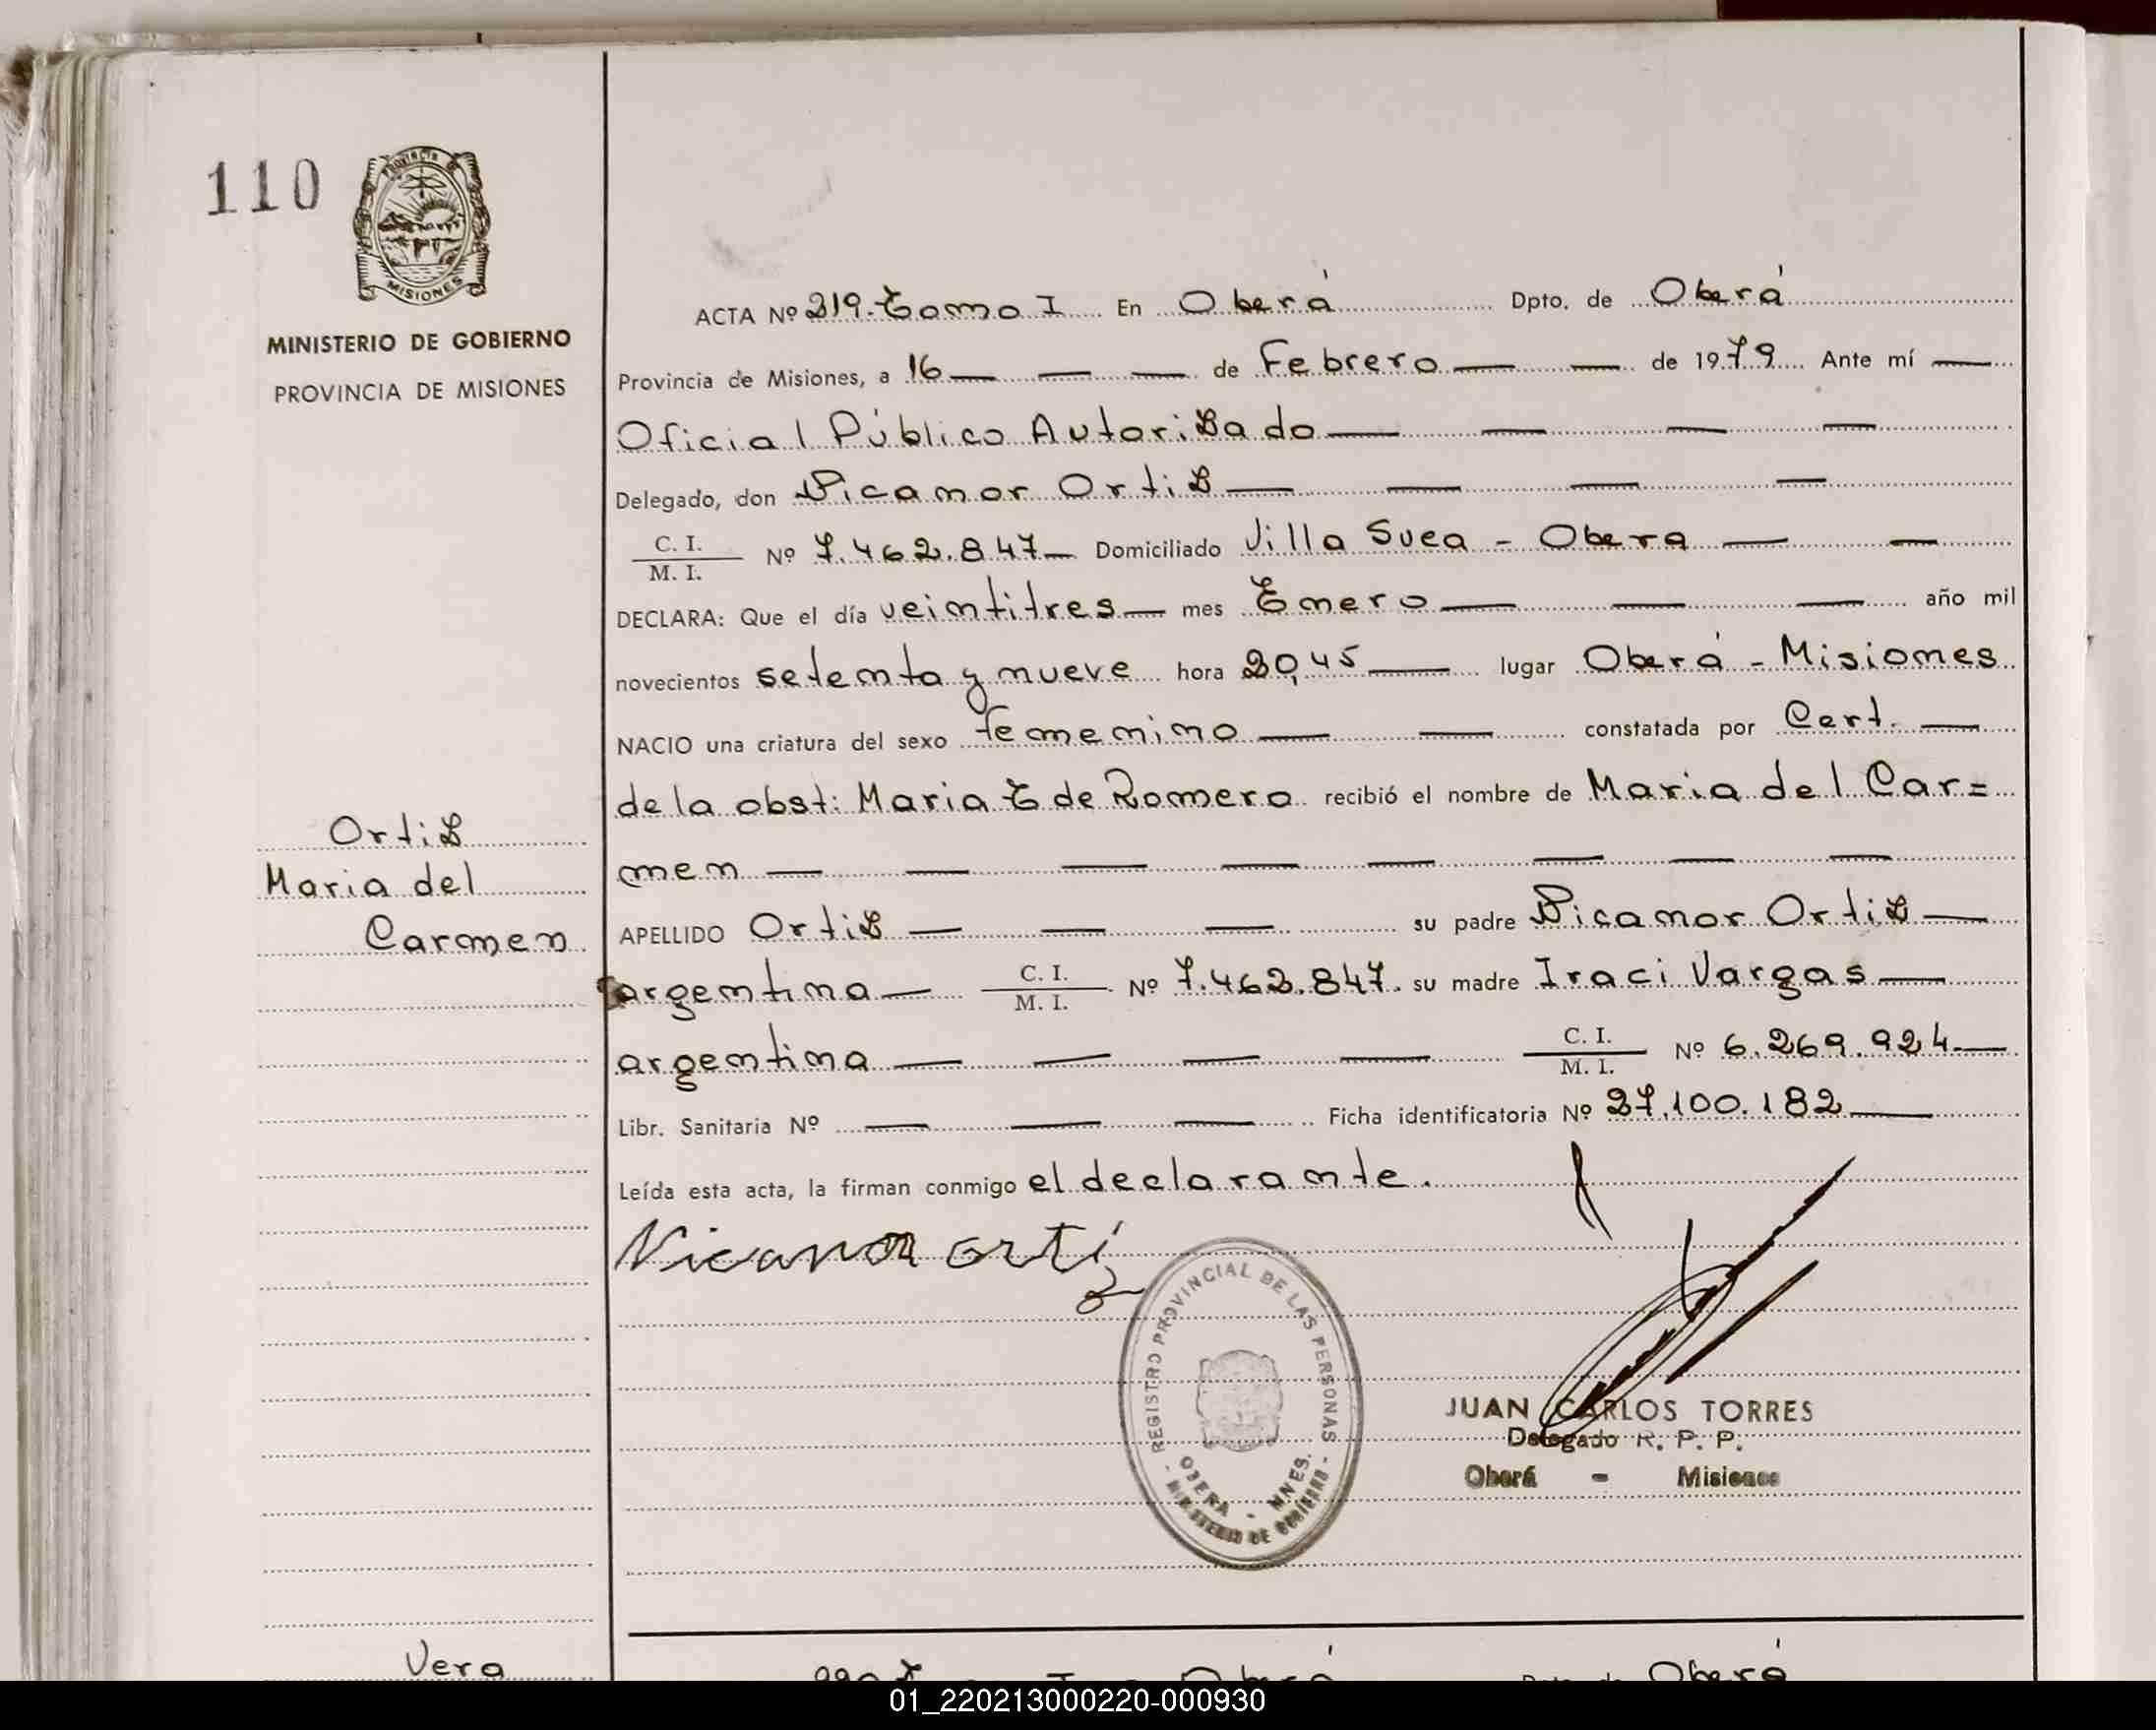 110
PROVINCIA
MISIONES
MINISTERIO DE GOBIERNO
PROVINCIA DE MISIONES
ACTA Nº 219. Tomo I En Oberá Dpto. de Oberá
Provincia de Misiones, a 16 — — — de Febrero — — de 1979 Ante mí —
Oficial Público Autorizado — — — —
Delegado, don Nicanor Ortiz — — — —
C. I.
M. I. Nº 7.462.847 — Domiciliado Villa Svea - Obera — —
DECLARA: Que el día veintitres — mes Enero — — — año mil
novecientos setenta y nueve hora 20,45 — lugar Oberá - Misiones
NACIO una criatura del sexo femenino — — constatada por Cert. —
de la obst: Maria E de Romero recibió el nombre de Maria del Car=
men — — — — — — — —
Ortiz
Maria del
Carmen
APELLIDO Ortiz — — — su padre Nicanor Ortiz —
argentina — C. I.
M. I. Nº 7.462.847. su madre Iraci Vargas —
argentina — — — — C. I.
M. I. Nº 6.269.924 —
Libr. Sanitaria Nº — — — Ficha identificatoria Nº 27.100.182 —
Leída esta acta, la firman conmigo el declarante.
Nicanor Ortiz
REGISTRO PROVINCIAL DE LAS PERSONAS
OBERA - MNES.
- MINISTERIO DE GOBIERNO -
JUAN CARLOS TORRES
Delegado R. P. P.
Oberá - Misiones
Vera
220 Tomo I Oberá Dpto. de Oberá
01_220213000220-000930